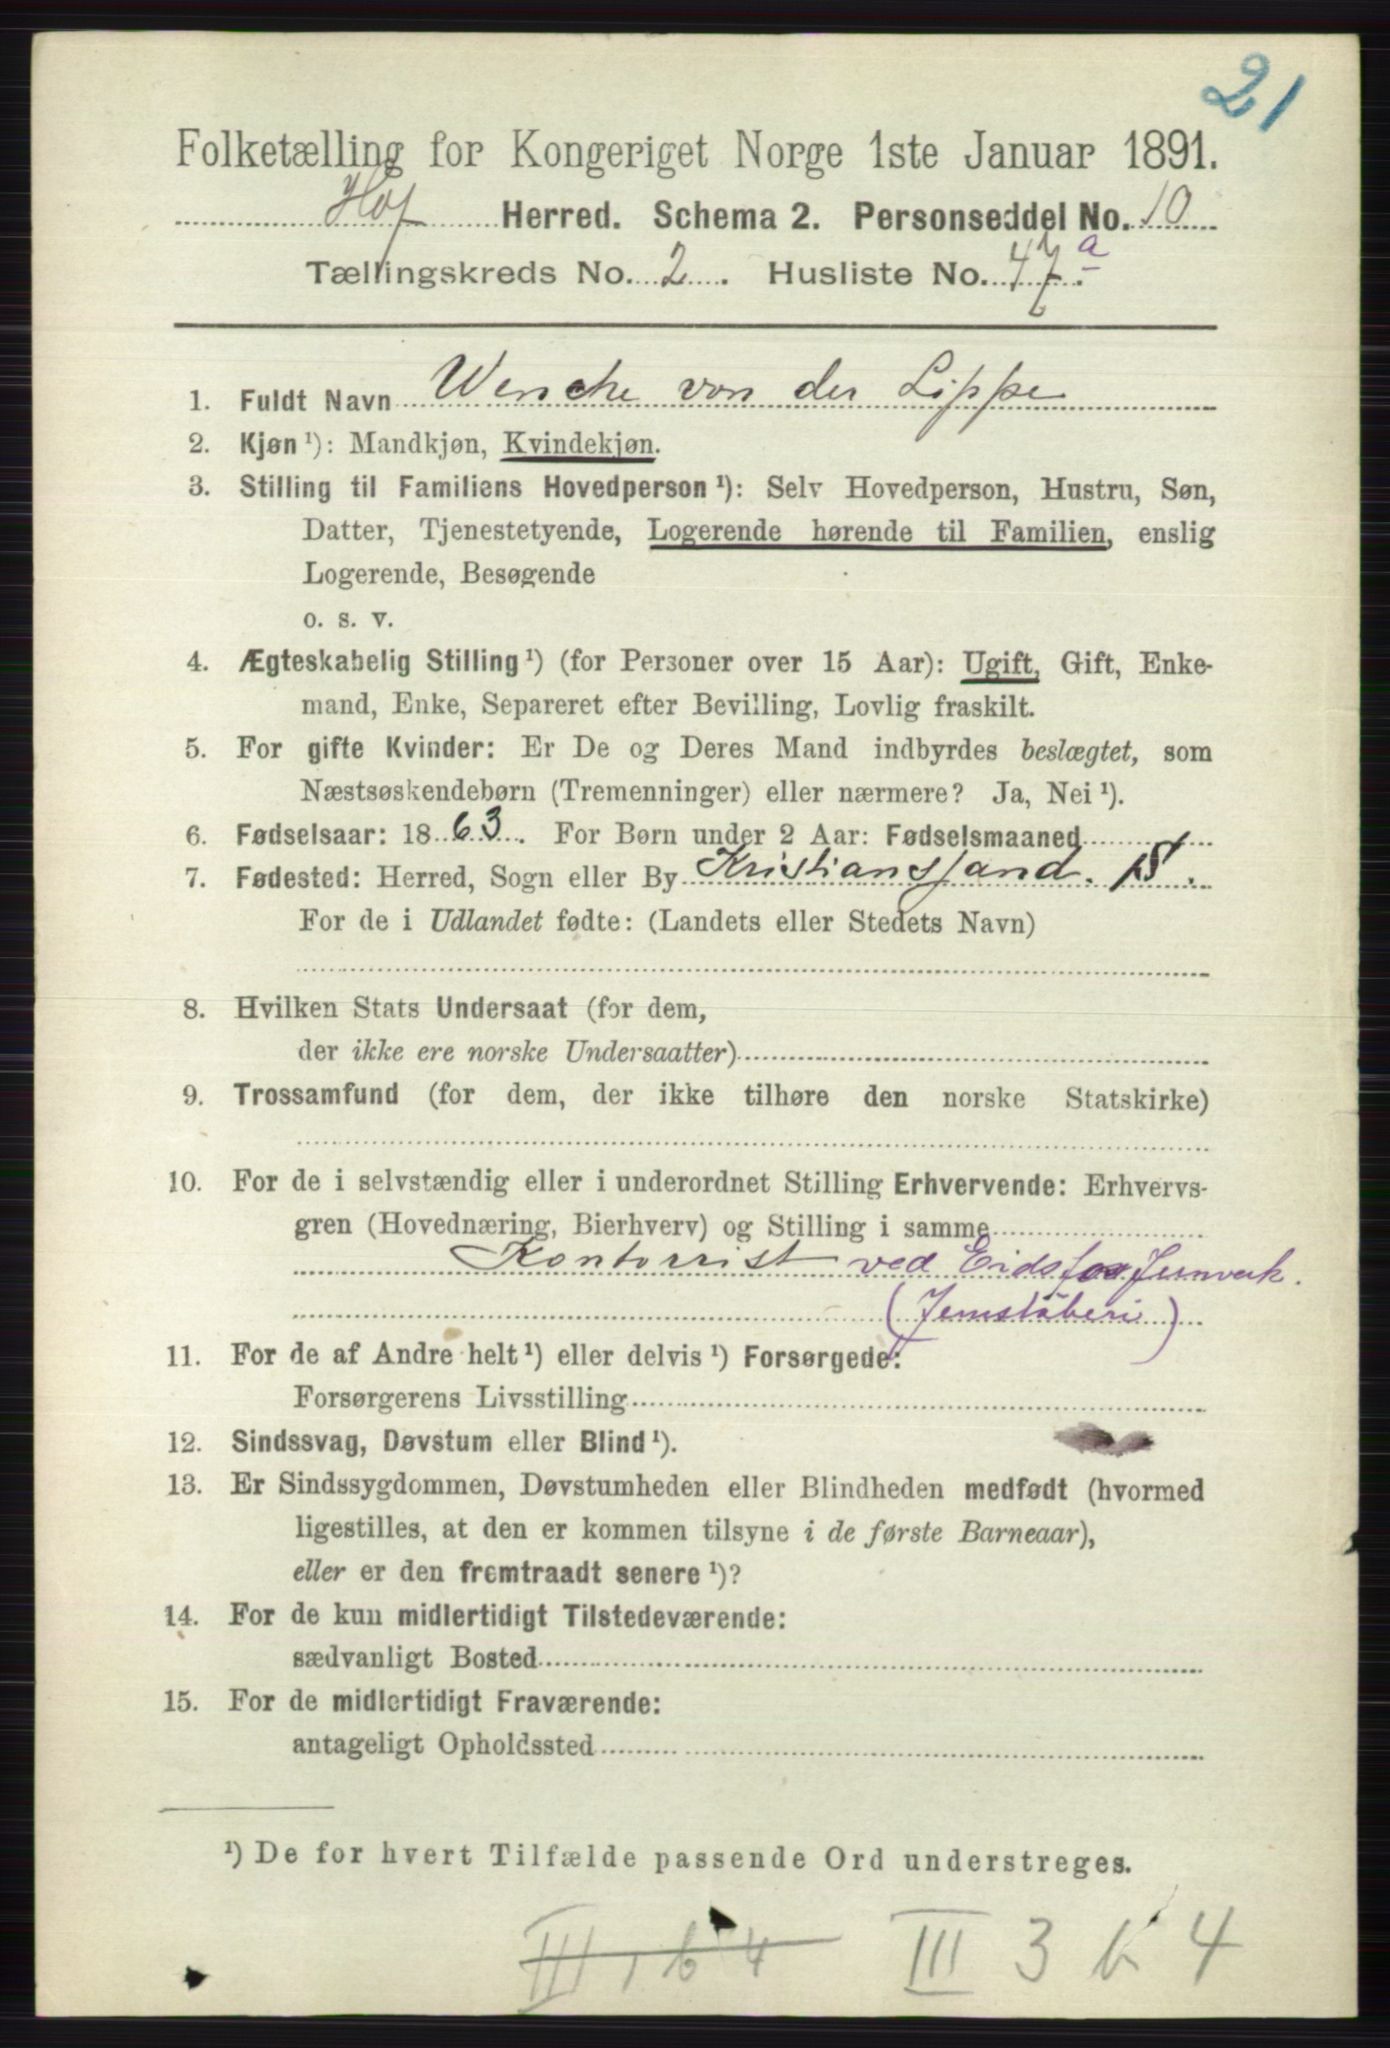 21
Folketælling for Kongeriget Norge 1ste Januar 1891.
Hof Herred. Schema 2. Personseddel No. 10
Tællingskreds No. 2. Husliste No. 47.a
1. Fuldt Navn Wenche von der Lippe
2. Kjøn¹): Mandkjøn, Kvindekjøn.
3. Stilling til Familiens Hovedperson¹): Selv Hovedperson, Hustru, Søn,
Datter, Tjenestetyende, Logerende hørende til Familien, enslig
Logerende, Besøgende
o. s. v.
4. Ægteskabelig Stilling¹) (for Personer over 15 Aar): Ugift, Gift, Enke-
mand, Enke, Separeret efter Bevilling, Lovlig fraskilt.
5. For gifte Kvinder: Er De og Deres Mand indbyrdes beslægtet, som
Næstsøskendebørn (Tremenninger) eller nærmere? Ja, Nei¹).
6. Fødselsaar: 1863. For Børn under 2 Aar: Fødselsmaaned
7. Fødested: Herred, Sogn eller By Kristianssand.
For de i Udlandet fødte: (Landets eller Stedets Navn)
8. Hvilken Stats Undersaat (for dem,
der ikke ere norske Undersaatter)
9. Trossamfund (for dem, der ikke tilhøre den norske Statskirke)
10. For de i selvstændig eller i underordnet Stilling Erhvervende: Erhvervs-
gren (Hovednæring, Bierhverv) og Stilling i samme
Kontorrist ved Eidsfos Jernverk.
(Jernstøberi)
11. For de af Andre helt¹) eller delvis¹) Forsørgede:
Forsørgerens Livsstilling
12. Sindssvag, Døvstum eller Blind¹).
13. Er Sindssygdommen, Døvstumheden eller Blindheden medfødt (hvormed
ligestilles, at den er kommen tilsyne i de første Barneaar),
eller er den fremtraadt senere¹)?
14. For de kun midlertidigt Tilstedeværende:
sædvanligt Bosted
15. For de midlertidigt Fraværende:
antageligt Opholdssted
¹) De for hvert Tilfælde passende Ord understreges.
III 1 b 4 III 3 b 4